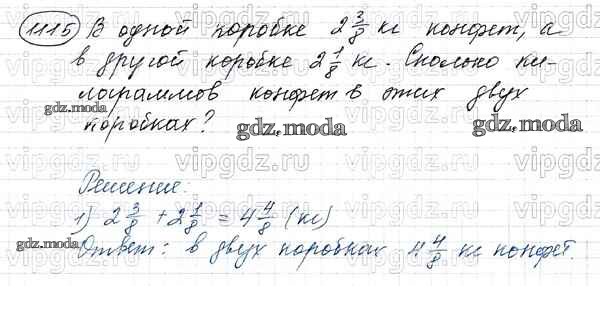 1115 В одной коробке 2 3/8 кг конфет, а
в другой коробке 2 1/8 кг. Сколько ки-
лограммов конфет в этих двух
коробках?
gdz.moda
gdz.moda
gdz.moda
Решение:
1) 2 3/8 + 2 1/8 = 4 4/8 (кг)
gdz.moda
Ответ: в двух коробках 4 4/8 кг конфет.
vipgdz.ru